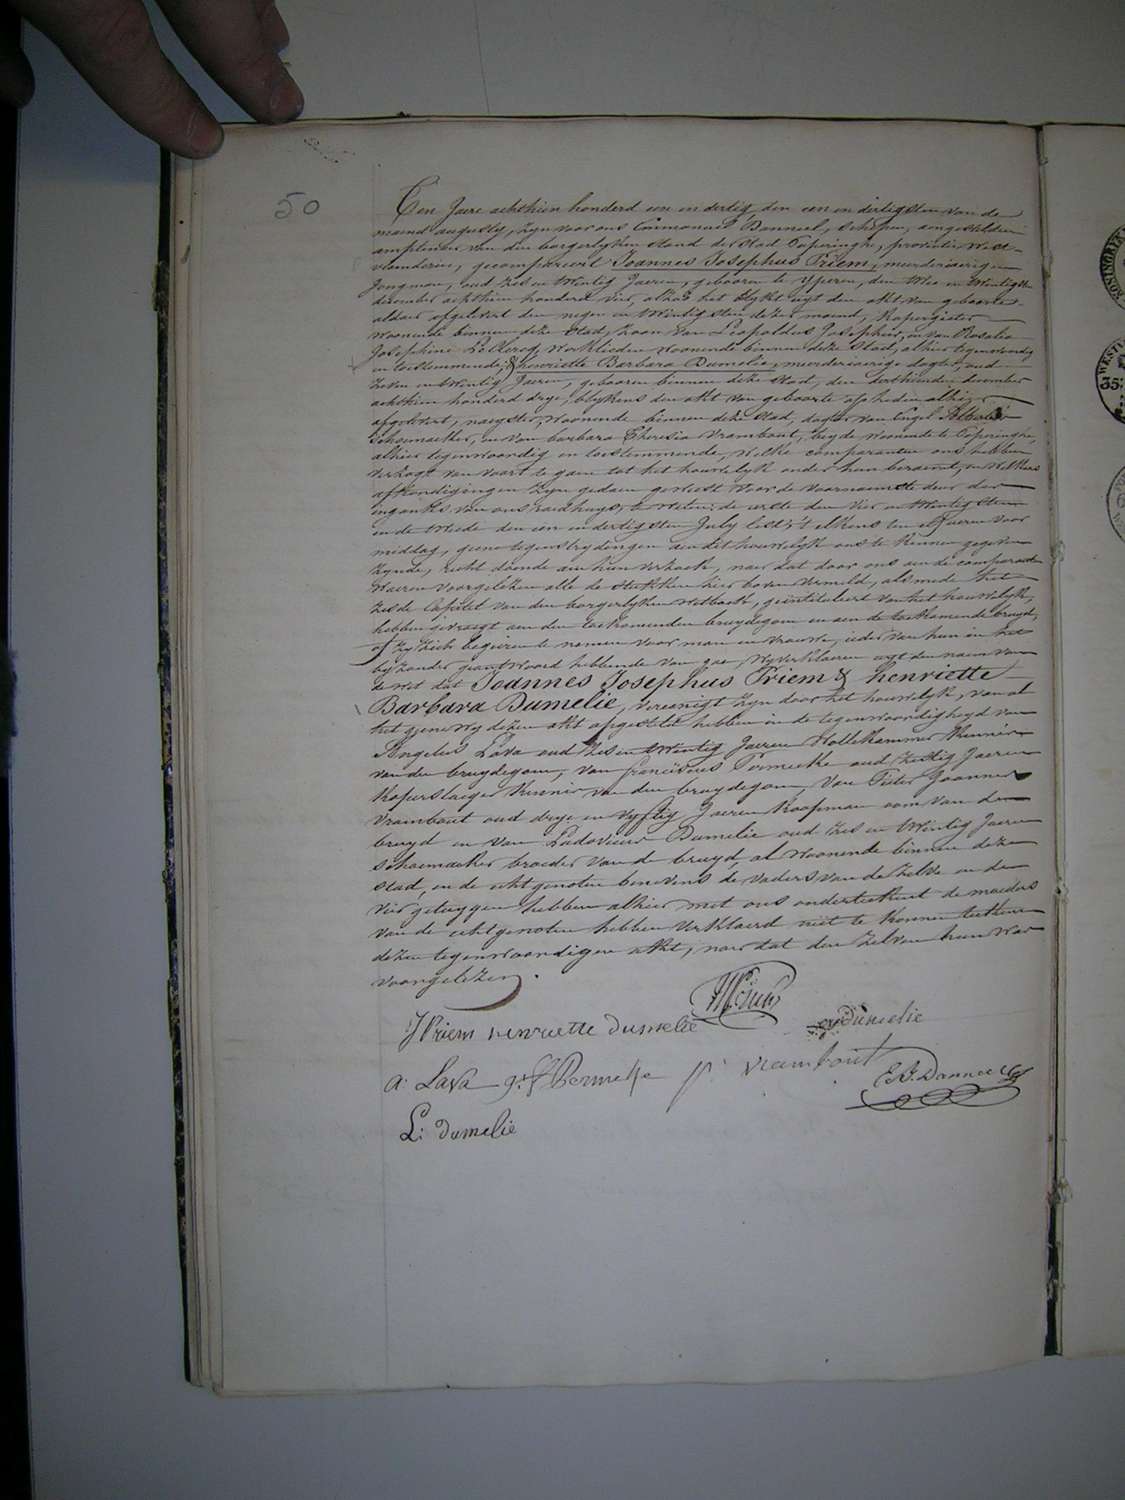 50
Ten Jaere achthien honderd een en dertig, den een en dertigsten van de
maend augusty, zyn voor ons Emmanuel Danneel, schepen, aengestelden
amptenaer van den borgerlyken stand der Stad Poperinghe, provintie West-
vlanderen, gecompareert Joannes Josephus Priem, meerderjaerigen
Jongman, oud zes en twintig Jaeren, gebooren te Yperen, den twee en twintigsten
december achthien honderd vier, alzoo het blykt uyt den akt van geboorte
aldaer afgelevert den negen en twintigsten dezer maend, kopergieter
woonende binnen deze Stad, zoon van Leopoldus Josephus, en van Rosalia
Josephine Leclercq, werklieden woonende binnen deze Stad, alhier tegenwoordig
en toestemmende, & henriette Barbara Dumelie, meerderjarige dogter, oud
zeven en twintig Jaeren, gebooren binnen deze stad, den derthienden december
achthien honderd drye, blykens den akt van geboorte op heden alhier
afgelevert, naeyster, woonende binnen deze stad, dogter van Engel Albertus
schoenmaeker, en van barbara Theresia Vrambout, beyde woonende te Poperinghe,
alhier tegenwoordig en toestemmende, welke comparanten ons hebben
verzogt van voort te gaen tot het houwelyk onder hun beraemt, en welkers
afkondigingen zyn gedaen geweest voor de voornaemste deur der
ingank van ons raedhuys, te weten: de eerste den vier en twintigsten
en de tweede den een en dertigsten July lest, 't elkens ten elf ueren voor
middag, geene tegenstrydingen aen dit houwelyk ons te kennen gegeven
zynde, recht doende aen hun verzoek, naer dat door ons aen de comparanten
waeren voorgelezen alle de stukken hier boven vermeld, als mede het
zesde Capittel van den borgerlyken wetboek, geïntituleert van het houwelyk,
hebben gevraegt aen den toekomenden bruydegom en aen de toekomende bruyd,
of zy zich begeeren te nemen voor man en vrouwe, ieder van hun in het
byzonder geantwoord hebbende van jae, wy verklaeren uyt den naem van
de wet dat Joannes Josephus Priem & henriette
Barbara Dumelie, vereenigt zyn door het houwelyk, van al
het gene wy dezen akt opgesteld hebben in de tegenwoordigheyd van
Angelus Lava oud zes en twintig Jaeren Kennis
van den bruydegom, van oud zestig Jaeren
Koperslaeger Kennis van den bruydegom, Van Pieter Joannes
Vrambout oud drye en vyftig Jaeren Koopman oom van de
bruyd en van Ludovicus Dumelie oud zes en twintig Jaeren
schoenmaeker broeder van d bruyd, al woonende binnen deze
stad, en de echtgenoten benevens de vaders van de zelve en de
vier getuygen hebben alhier met ons onderteekent de moeders
van de echtgenoten hebben verklaerd niet te konnen teekenen
dezen tegenwoordigen akt, naer dat den zelven hun was
voorgelezen.
JPriem henriette Dumelie Dumelie
a: Lava Permeke p: vrambout E. Danneel
L: Dumelie